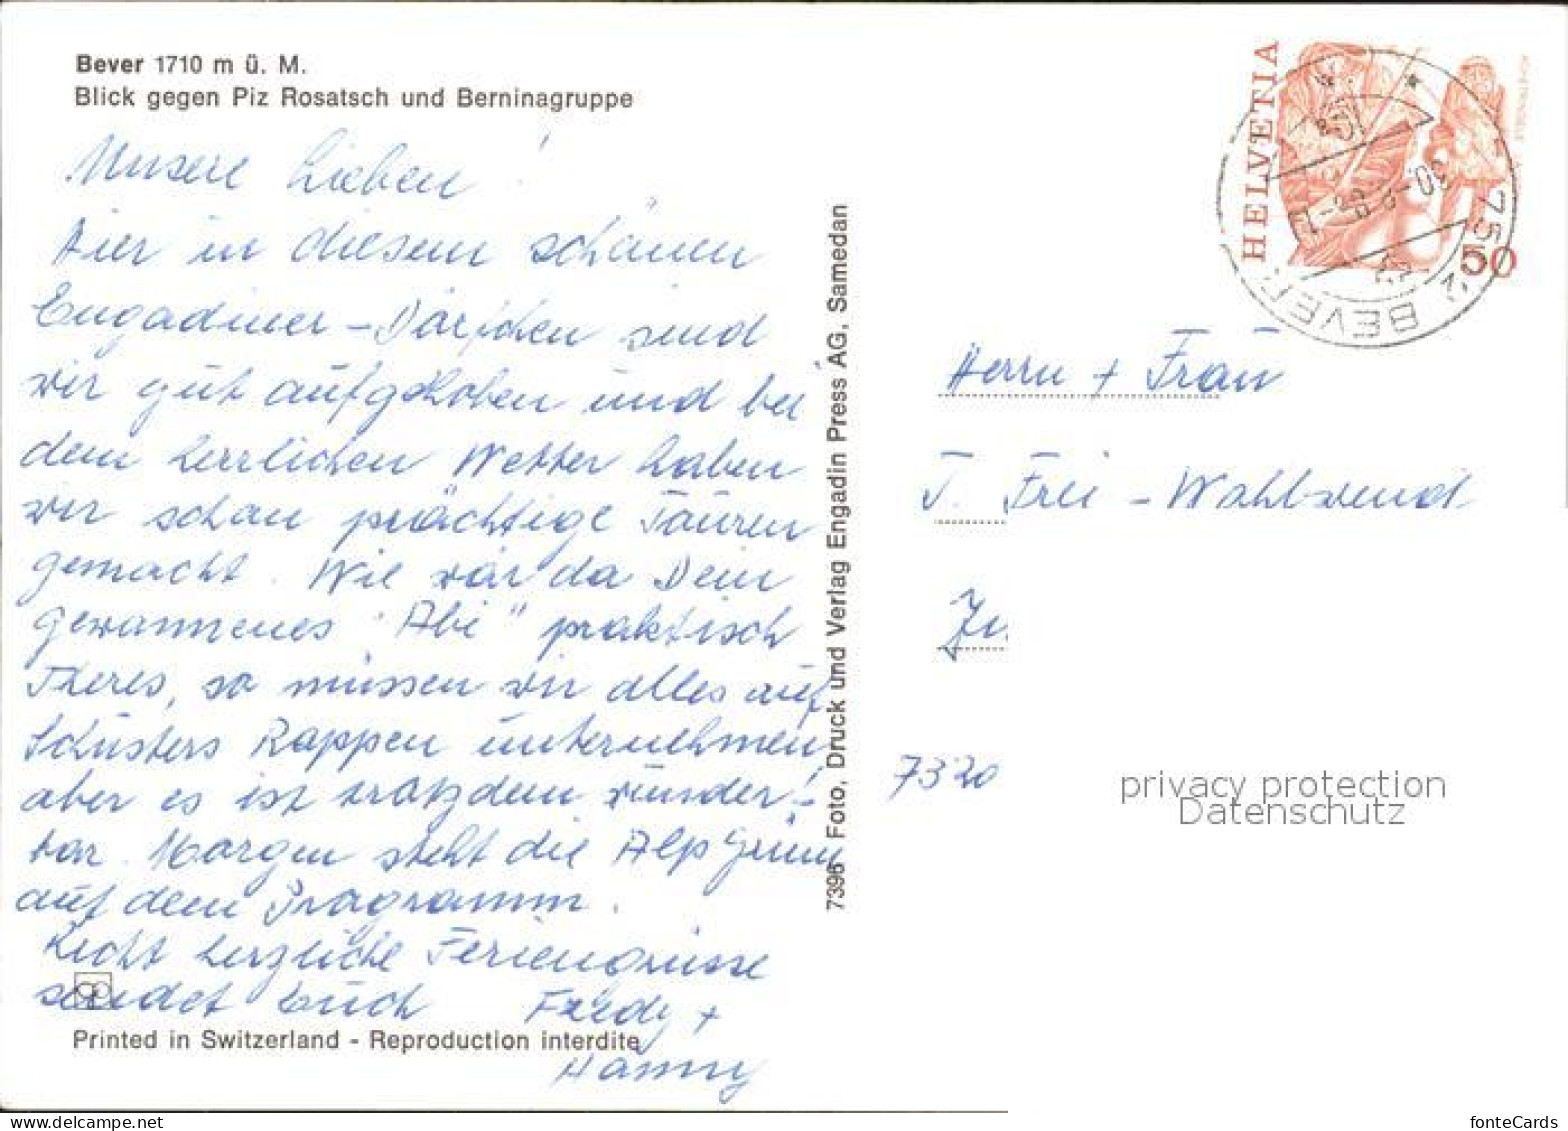 Bever 1710 m ü. M.
Blick gegen Piz Rosatsch und Berninagruppe
Unsere Lieben!
Hier in diesem schönen
Engadiner-Dörfchen sind
wir gut aufgehoben und bei
dem herrlichen Wetter haben
wir schon prächtige Touren
gemacht. Wie wär da Dein
gewonnenes "Abi" praktisch
Theres, so müssen wir alles auf
Schusters Rappen unternehmen,
aber es ist trotzdem wunder-
bar. Morgen steht die Alp Grüm
auf dem Programm.
Recht herzliche Feriengrüsse
sendet Euch Fredy +
Hanny
Printed in Switzerland - Reproduction interdite
7396 Foto, Druck und Verlag Engadin Press AG, Samedan
HELVETIA
50
BEVER
Herrn + Frau
J. Frei-Wohlwend
7320
privacy protection
Datenschutz
fonteCards